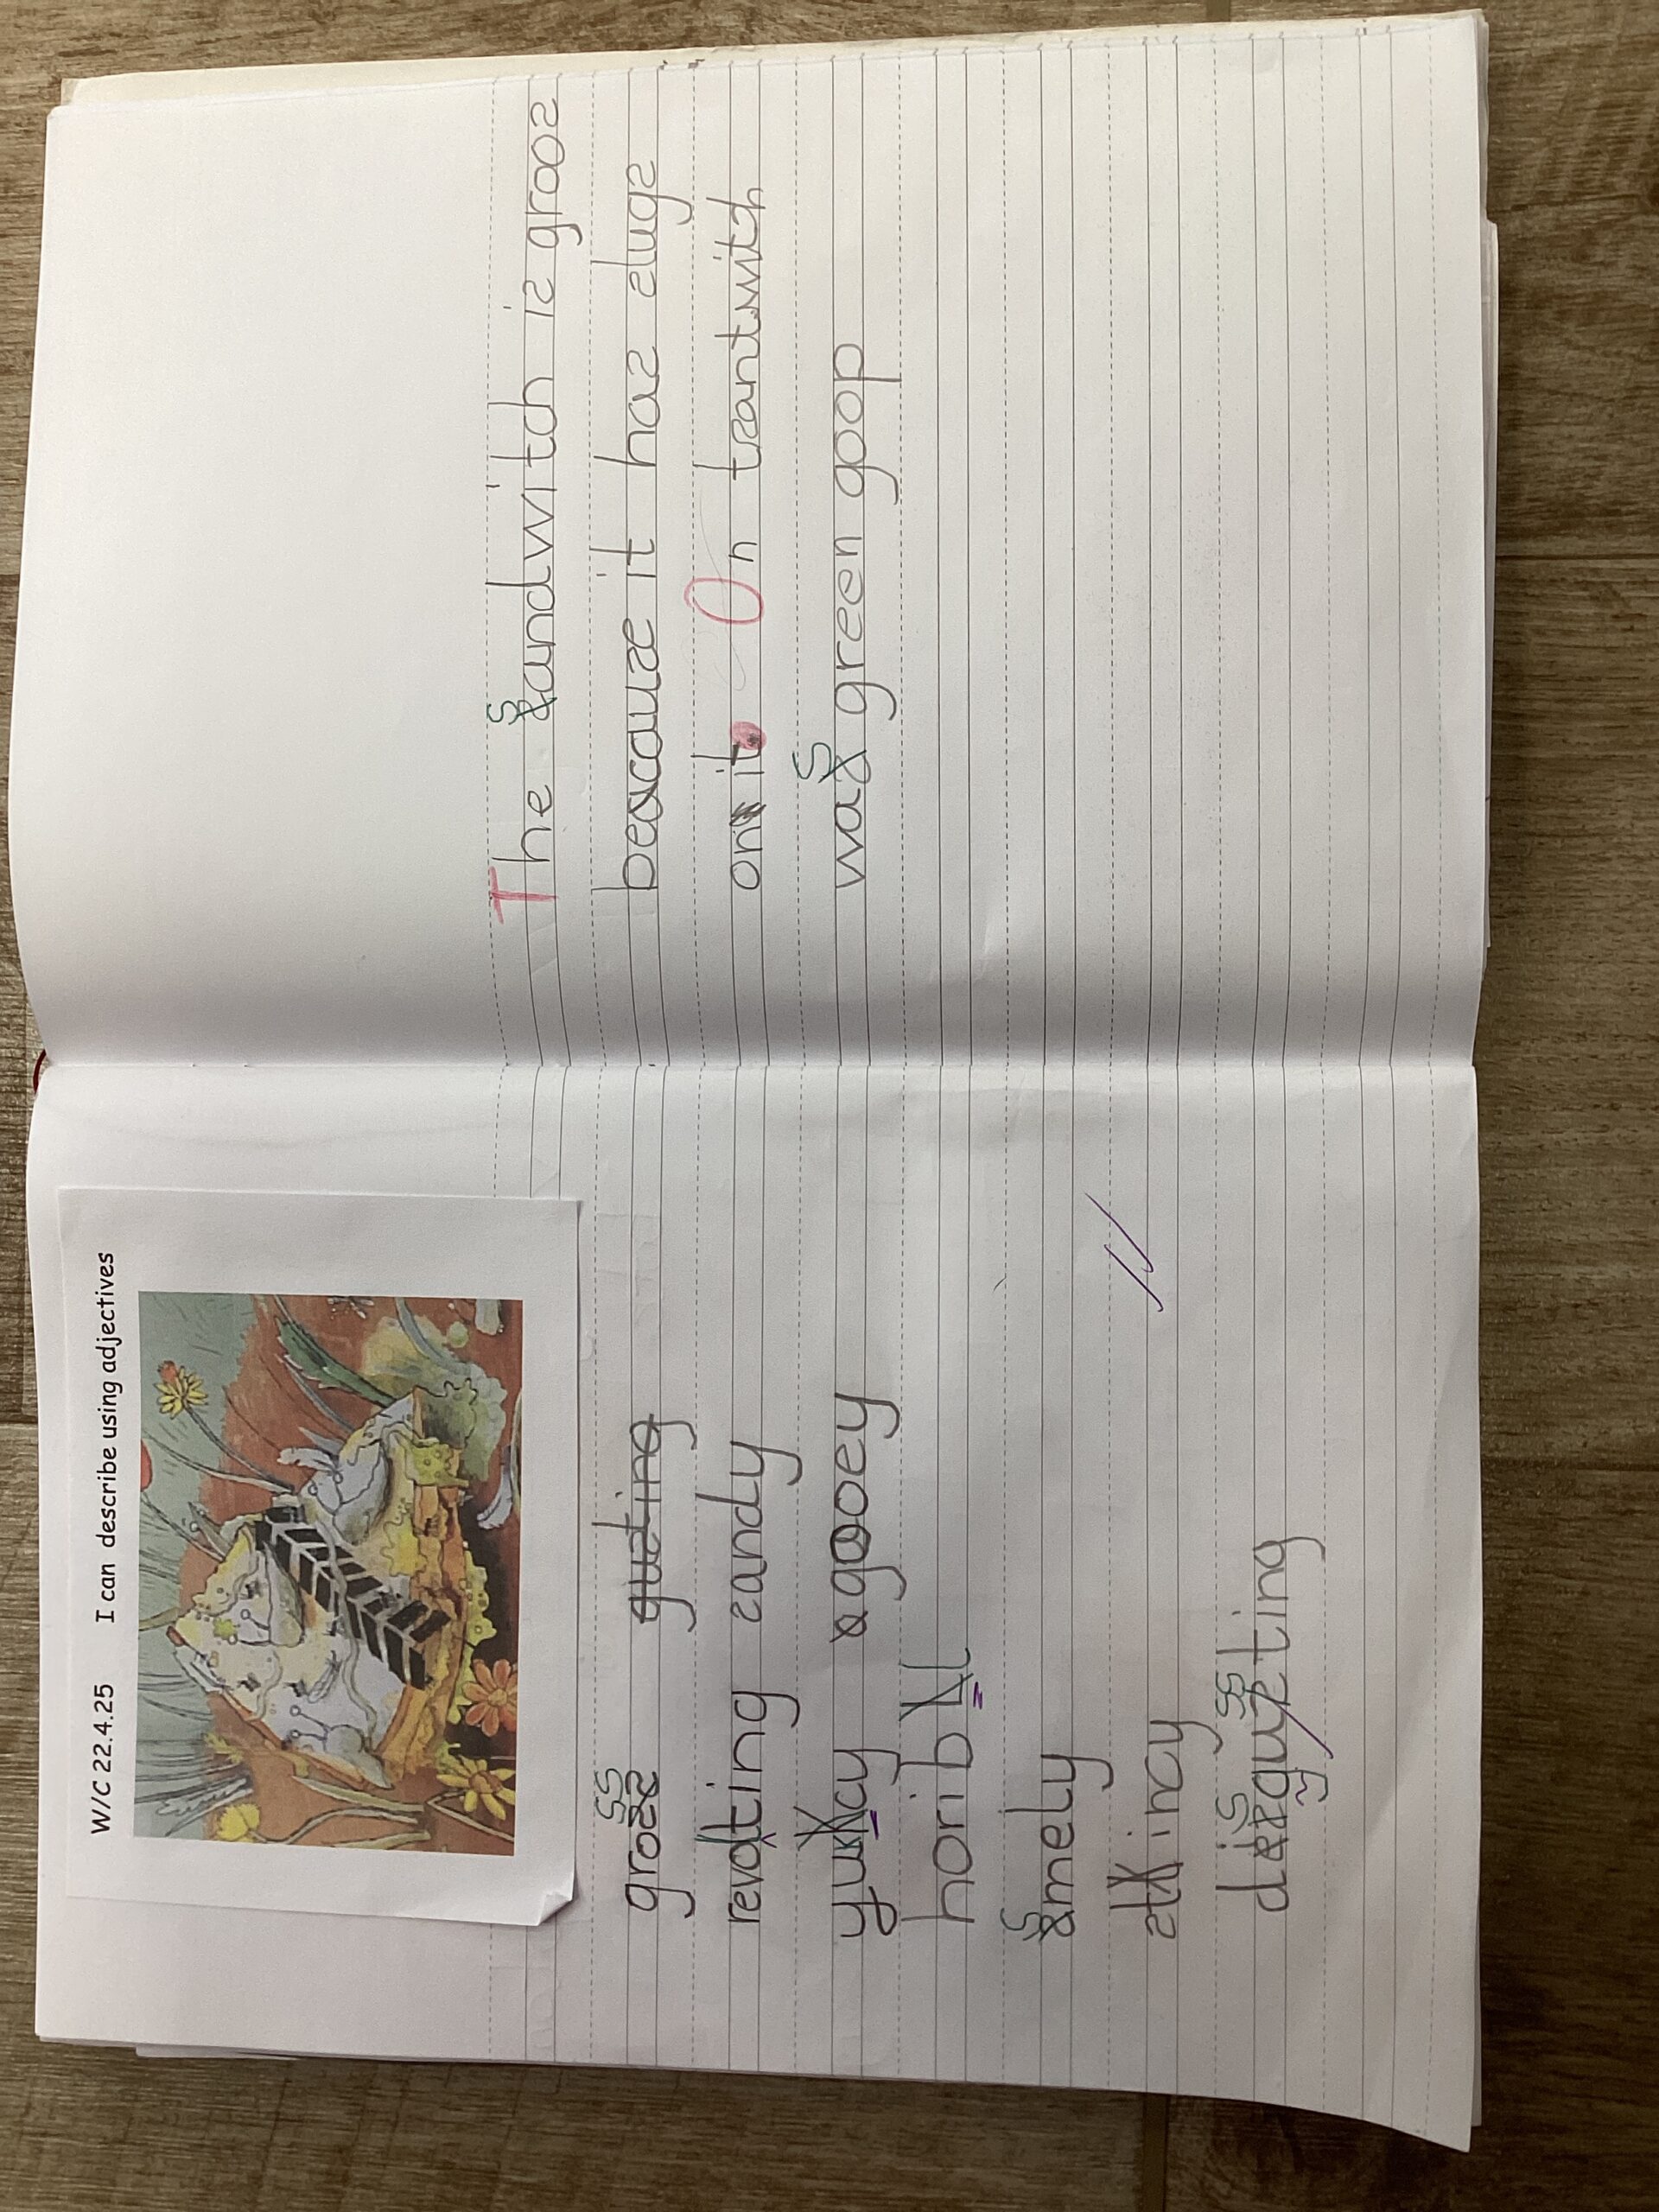 W/C 22.4.25 I can describe using adjectives
gross guzting
revolting candy
yukcy gooey
horibll
smely
stkincy
disgussting
The sandwitch is groos
because it has slugs
on it. On tsantwitch
was green goop